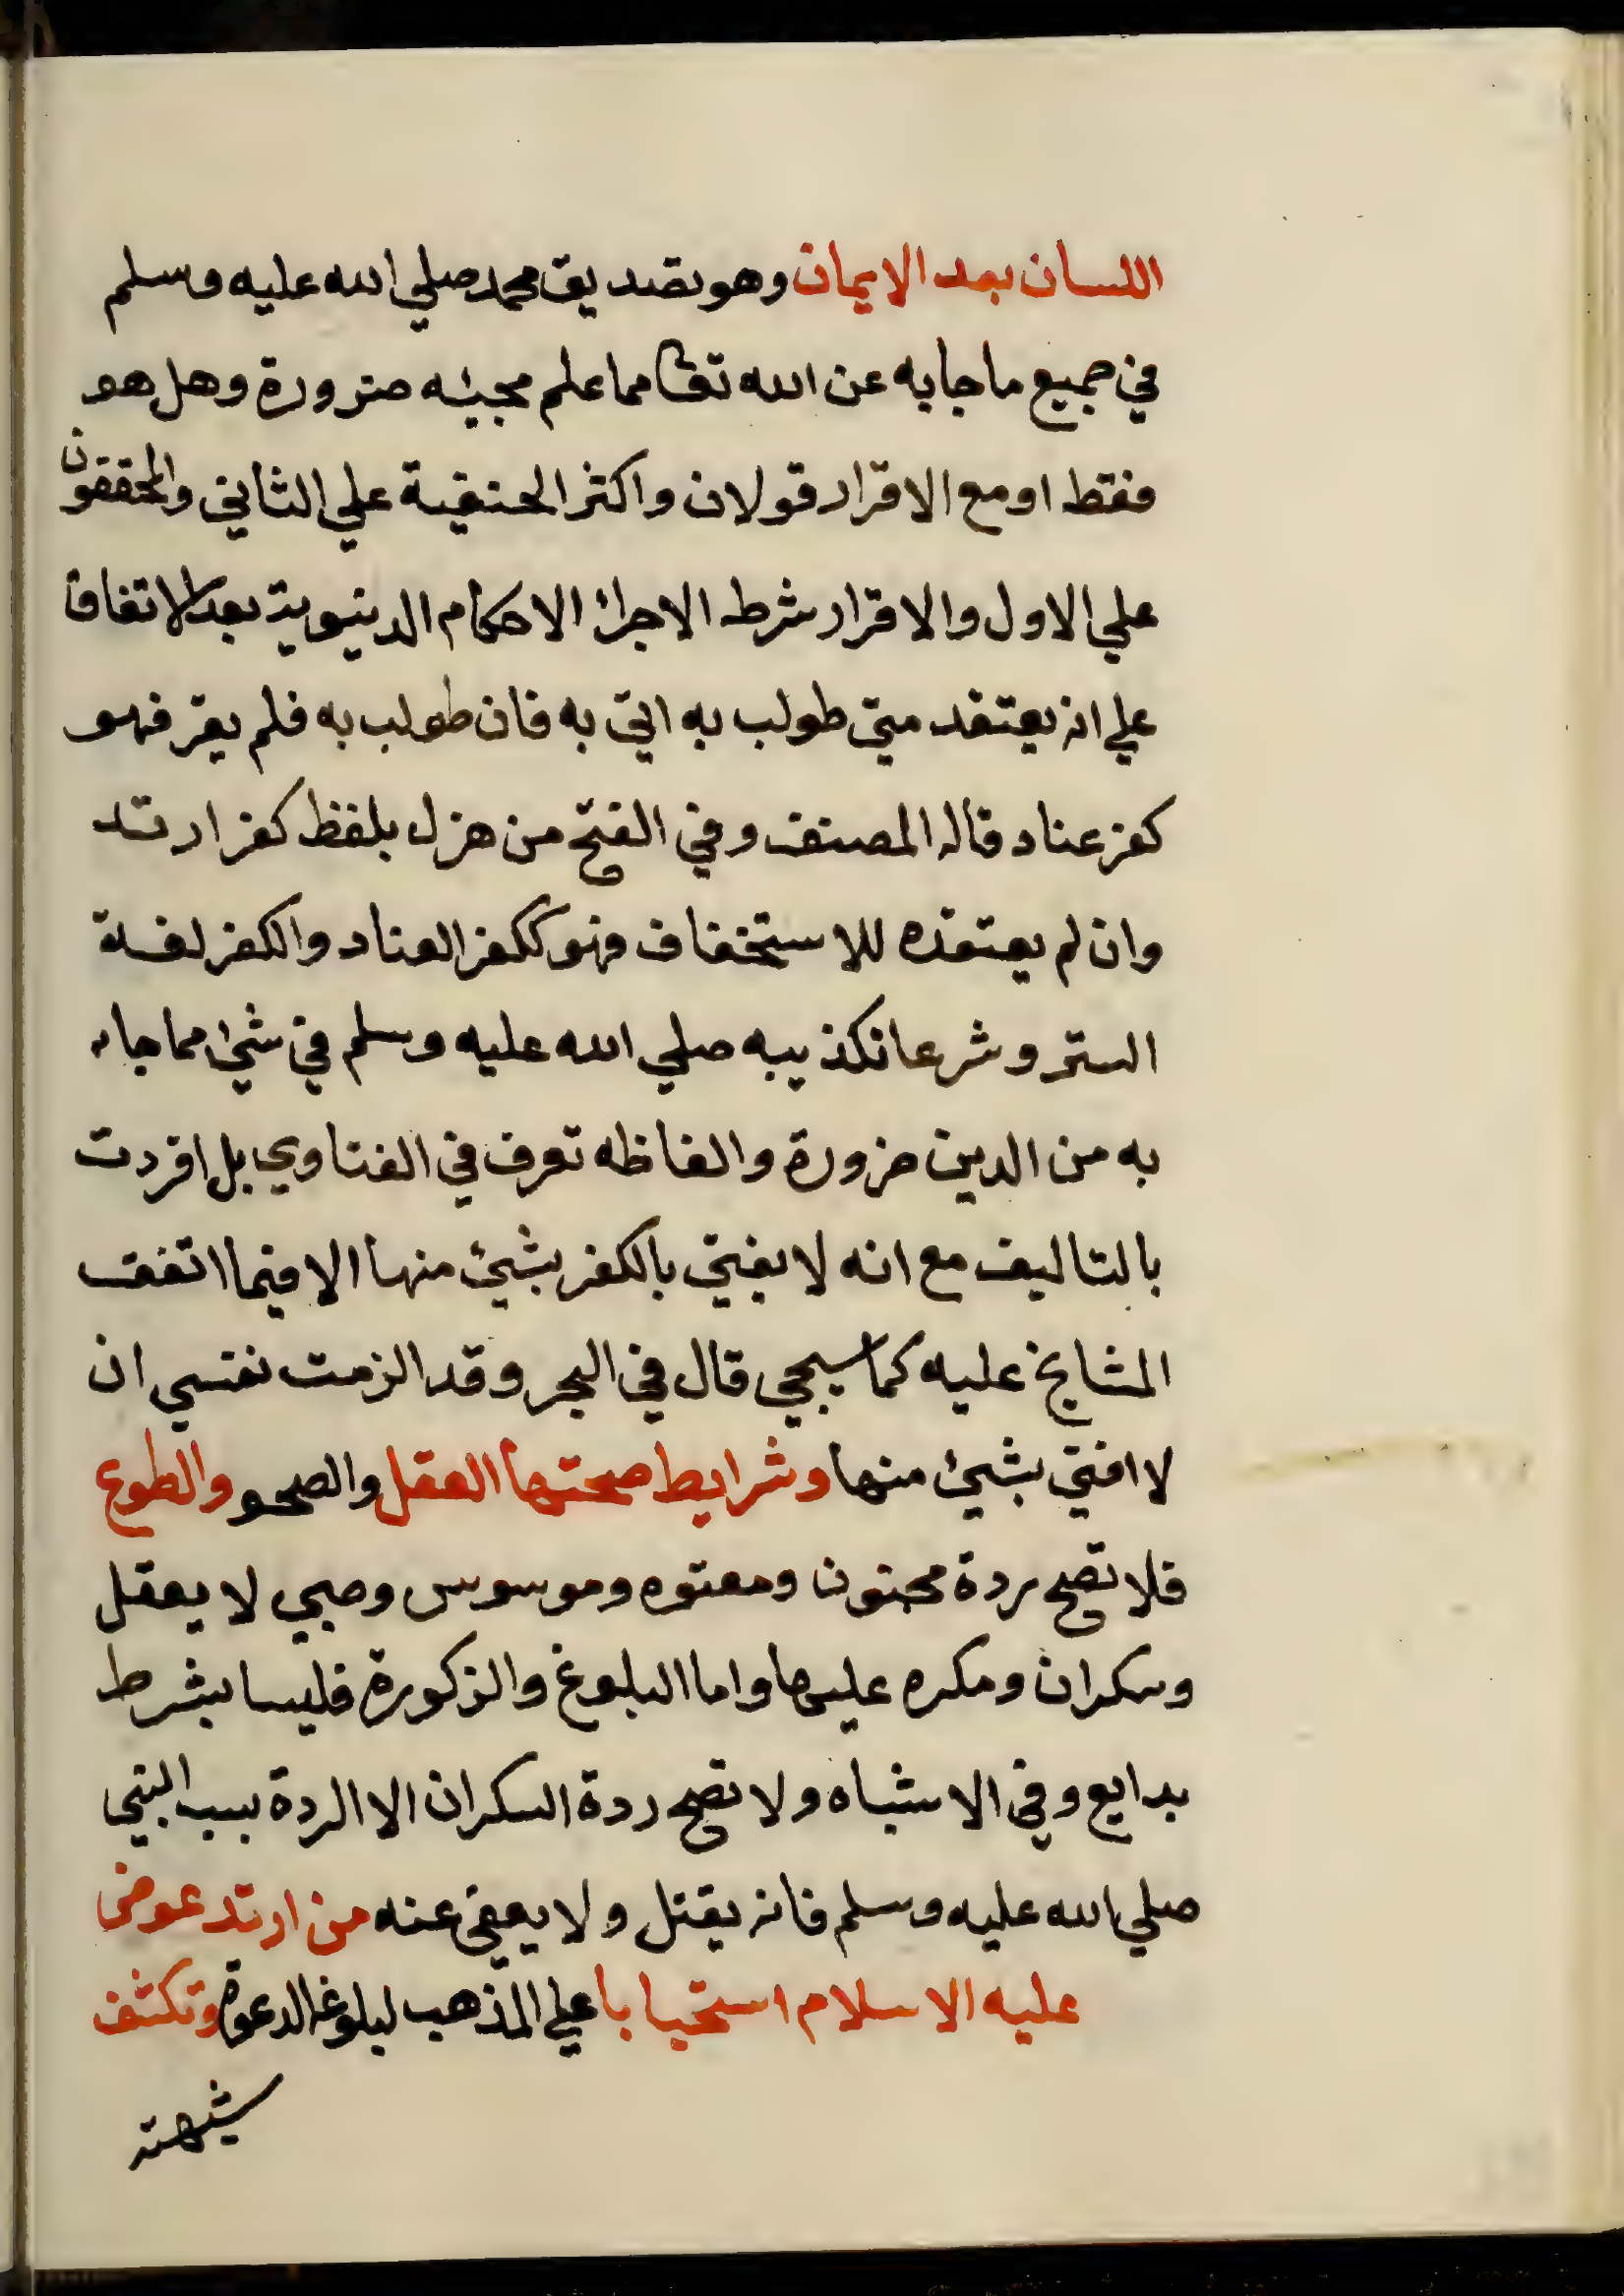 اللسان بعد الايمان وهو تصديق محمد صلي الله عليه وسلم
في جميع ما جا به عن الله تعا مما علم مجيئه ضرورة وهل هو
فقط او مع الاقرار قولان واكثر الحنفية علي الثاني والمحققون
علي الاول والاقرار شرط الاجراء الاحكام الدينوية بعد الاتفاق
علي انه يعتقد متي طولب به اتي به فان طولب به فلم يقر فهو
كفر عناد قاله المصنف وفي الفتح من هزل بلفظ كفر ارتد
وان لم يعتقده للاستخفاف فهو ككفر العناد والكفر لغة
الستر وشرعا تكذيبه صلي الله عليه وسلم في شيئ مما جاء
به من الدين ضرورة والفاظه تعرف في الفتاوي بل افردت
بالتاليف مع انه لا يفتي بالكفر بشيئ منها الا فيما اتفق
المشايخ عليه كما سيجي قال في البحر وقد الزمت نفسي ان
لا افتي بشيئ منها وشرايط صحتها العقل والصحو والطوع
فلا تصح ردة مجنون ومعتوه وموسوس وصبي لا يعقل
وسكران ومكره عليها واما البلوغ والذكورة فليسا بشرط
بدايع وفي الاشباه ولا تصح ردة السكران الا الردة بسب النبي
صلي الله عليه وسلم فانه يقتل ولا يعفي عنه من ارتد عرض
عليه الاسلام استحبابا علي المذهب لبلوغه الدعوة وتكشف
شبهته